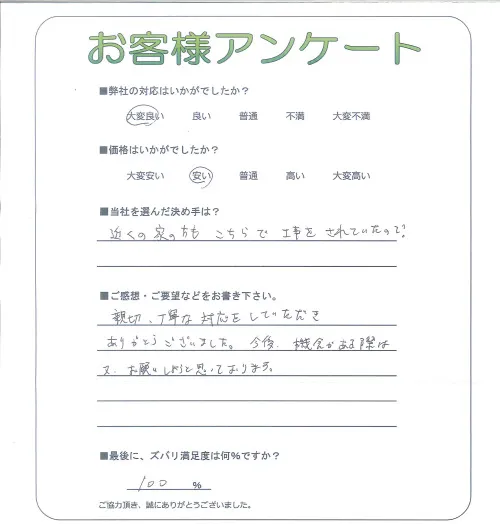 お客様アンケート
■弊社の対応はいかがでしたか？
大変良い 良い 普通 不満 大変不満
■価格はいかがでしたか？
大変安い 安い 普通 高い 大変高い
■当社を選んだ決め手は？
近くの家の方も こちらで 工事を されていたので
■ご感想・ご要望などをお書き下さい。
親切、丁寧な 対応を していただき
ありがとうございました。 今後、機会がある際は
又、お願いしたいと思っております。
■最後に、ズバリ満足度は何%ですか？
100 %
ご協力頂き、誠にありがとうございました。